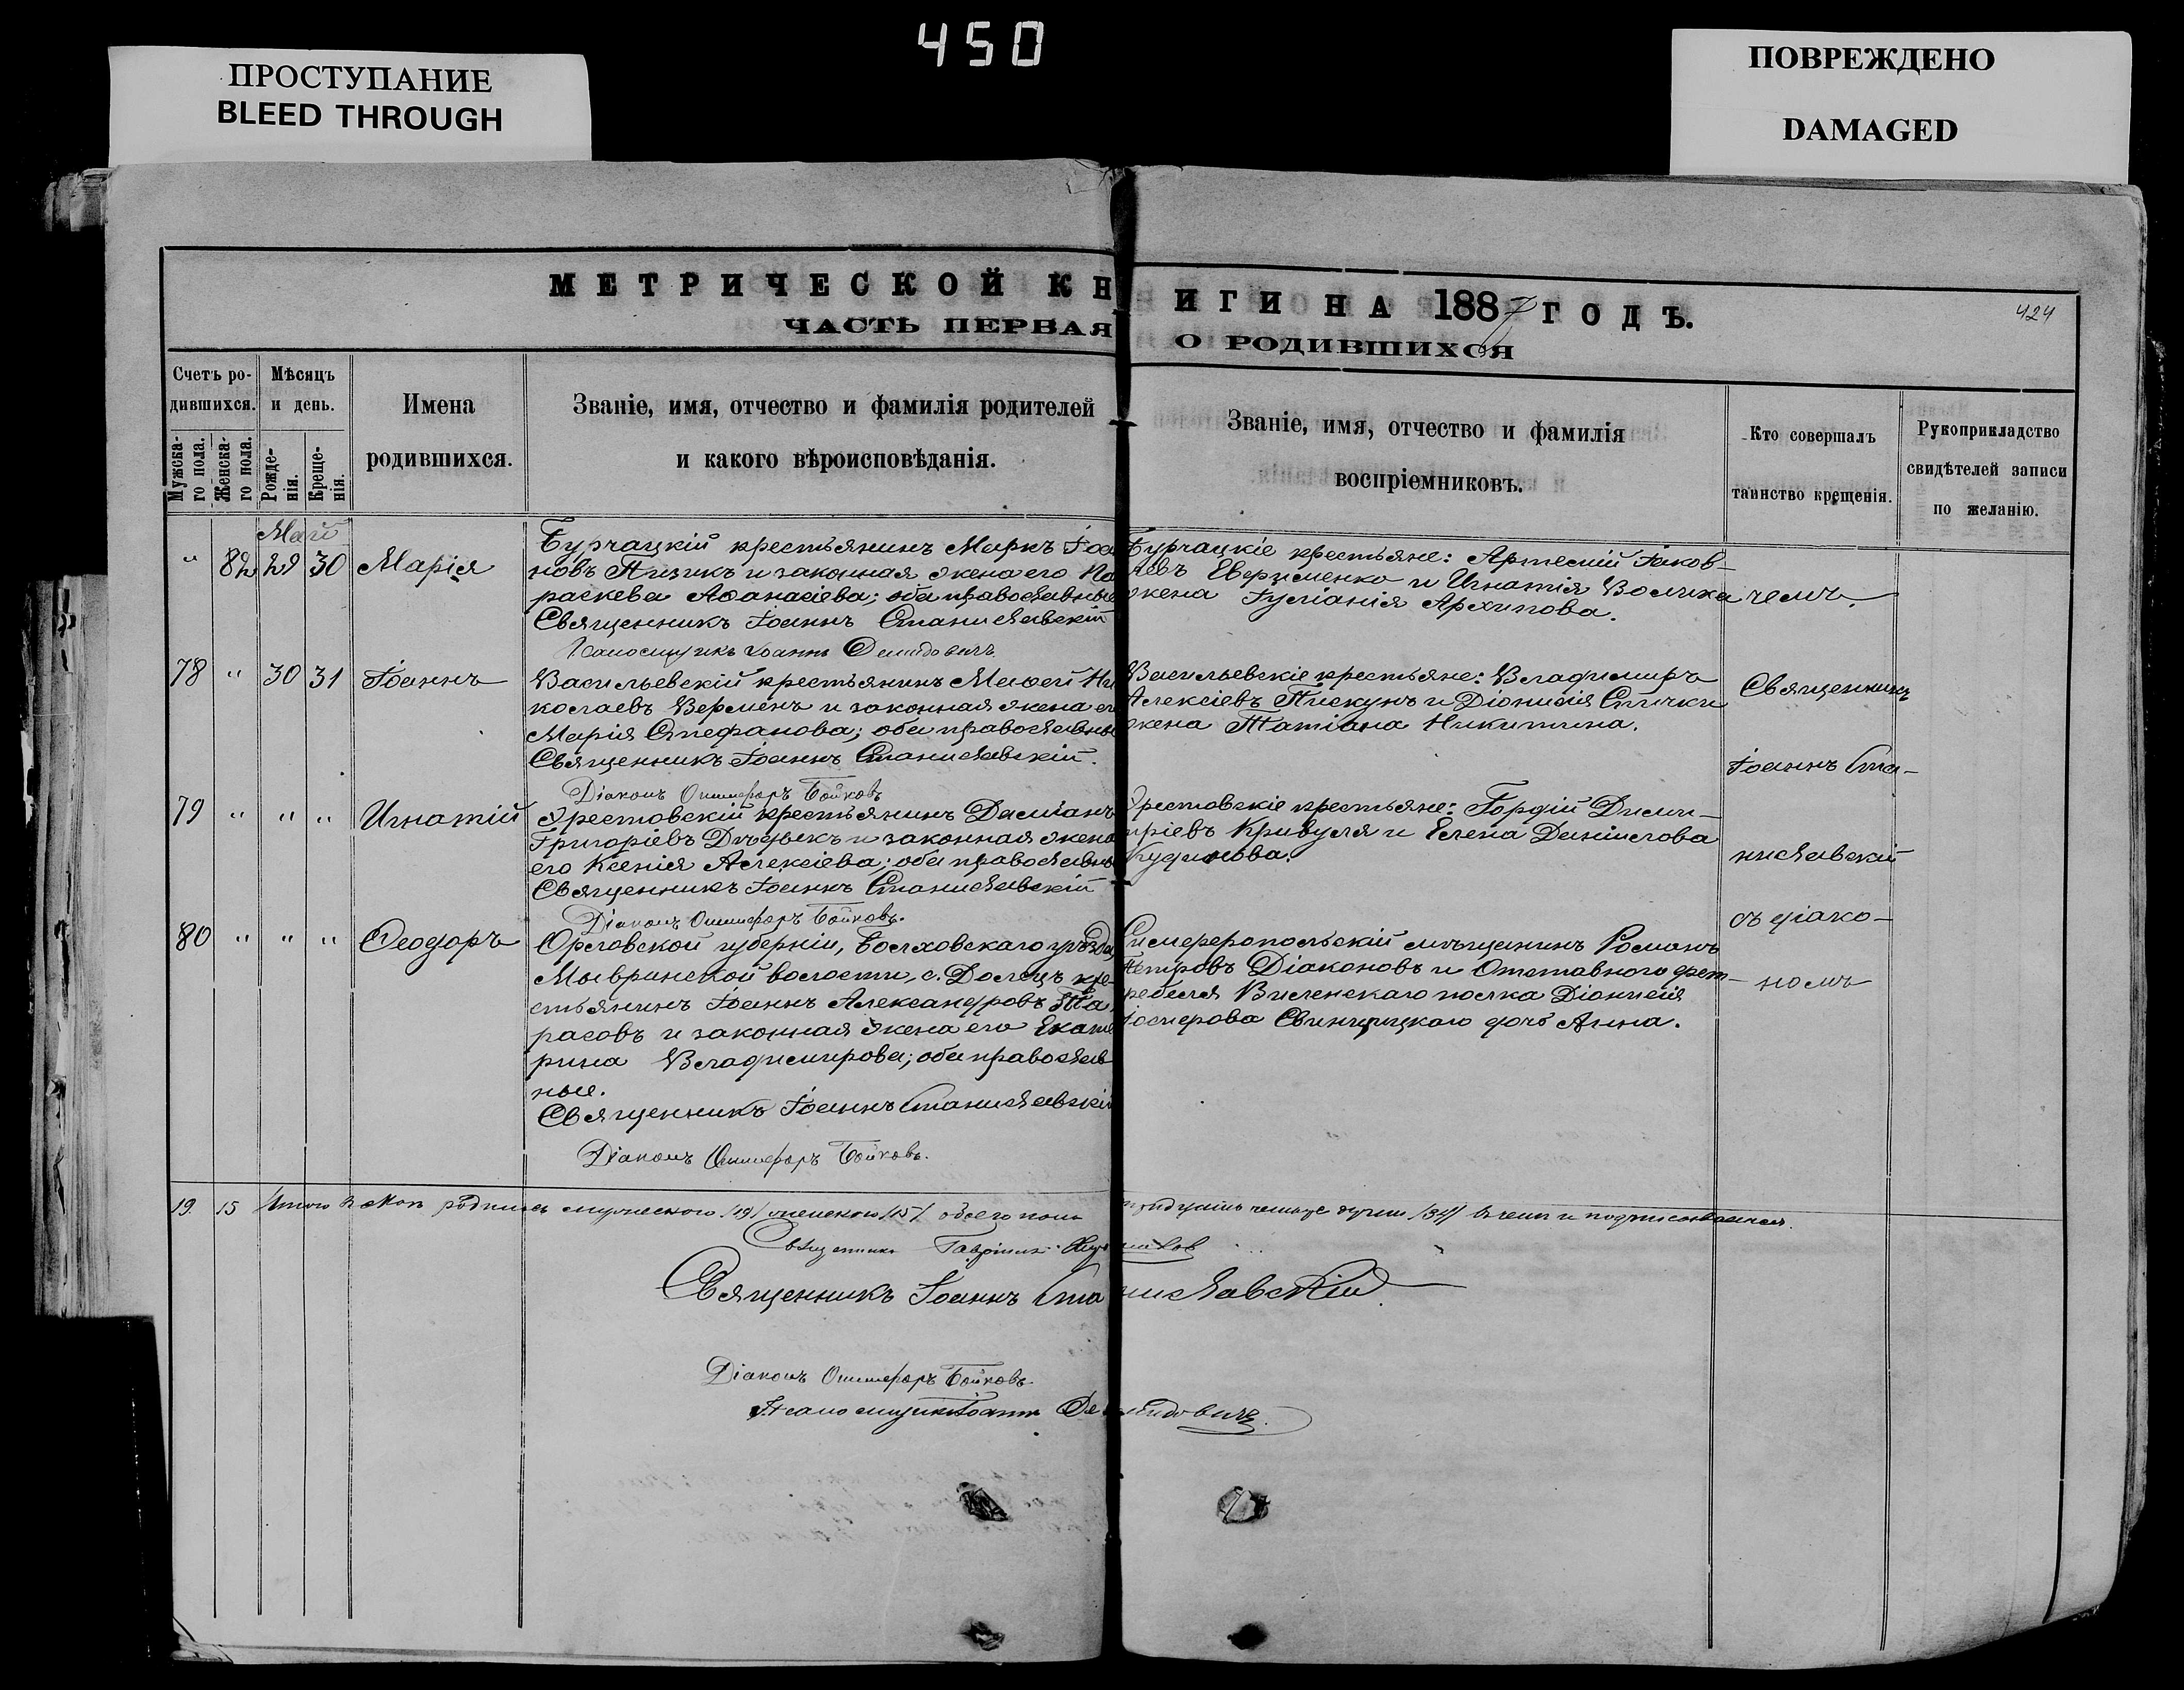 450
ПРОСТУПАНИЕ
BLEED THROUGH
ПОВРЕЖДЕНО
DAMAGED
МЕТРИЧЕСКОЙ КНИГИ НА 1887 ГОДЪ.
424
ЧАСТЬ ПЕРВАЯ О РОДИВШИХСЯ
Счетъ ро-
дившихся.
Мужска-
го пола.
Женска-
го пола.
Мѣсяцъ
и день.
Рожде-
нія.
Креще-
нія.
Имена
родившихся.
Званіе, имя, отчество и фамилія родителей
и какого вѣроисповѣданія.
Званіе, имя, отчество и фамилія
воспріемниковъ.
Кто совершалъ
таинство крещенія.
Рукоприкладство
свидѣтелей записи
по желанію.
Май
" 82 29 30 Марія
Бурчацкій крестьянинъ Маркъ Іоа
новъ Пизикъ и законная жена его Па
раскева Аѳанасіева; оба православные
Священникъ Іоаннъ Станиславскій
Псаломщикъ Іоаннъ Демидовичъ
Бурчацкіе крестьяне: Артемій Іаков-
левъ Евфименко и Игнатія Волика
жена Іуліанія Архипова.
чемъ.
78 " 30 31 Іоаннъ
Васильевскій крестьянинъ Матѳей Ни
колаевъ Верменъ и законная жена ег
Марія Стефанова; оба православны
Священникъ Іоаннъ Станиславскій.
Діаконъ Онисифоръ Бойковъ
Васильевскіе крестьяне: Владимиръ
Алексіевъ Пискунъ и Діонисія Стички
жена Татіана Никитина.
Священникъ
Іоаннъ Ста-
79 " " " Игнатій
Эрестовскій крестьянинъ Даміанъ
Григоріевъ Дѣдыкъ и законная жена
его Ксенія Алексіева; оба православны
Священникъ Іоаннъ Станиславскій
Діаконъ Онисифоръ Бойковъ.
Эрестовскіе крестьяне: Гордій Дими-
тріевъ Кривуля и Елена Даніилова
Кудинова.
ниславскій
съ діако-
80 " " " Ѳеодоръ
Орловской губерніи, Болховскаго уѣзда
Мывринской волости, с. Долецъ кре-
стьянинъ Іоаннъ Александровъ Та
расовъ и законная жена его Екате
рина Владимирова; оба православ
ные.
Священникъ Іоаннъ Станиславскій
Діаконъ Онисифоръ Бойковъ.
Симферопольскій мѣщанинъ Романъ
Петровъ Діаконовъ и Отставного фельд-
фебеля Виленскаго полка Діонисія
Свинцицкаго дочь Анна.
номъ
19. 15 Итого въ Маѣ родилось мужескаго /19/ женскаго /15/ обоего пола тридцать четыре души /34/ въ чемъ и подписываемся.
Священникъ Гавріилъ
Священникъ Іоаннъ Станиславскій
Діаконъ Онисифоръ Бойковъ
Псаломщикъ Іоаннъ Демидовичъ.